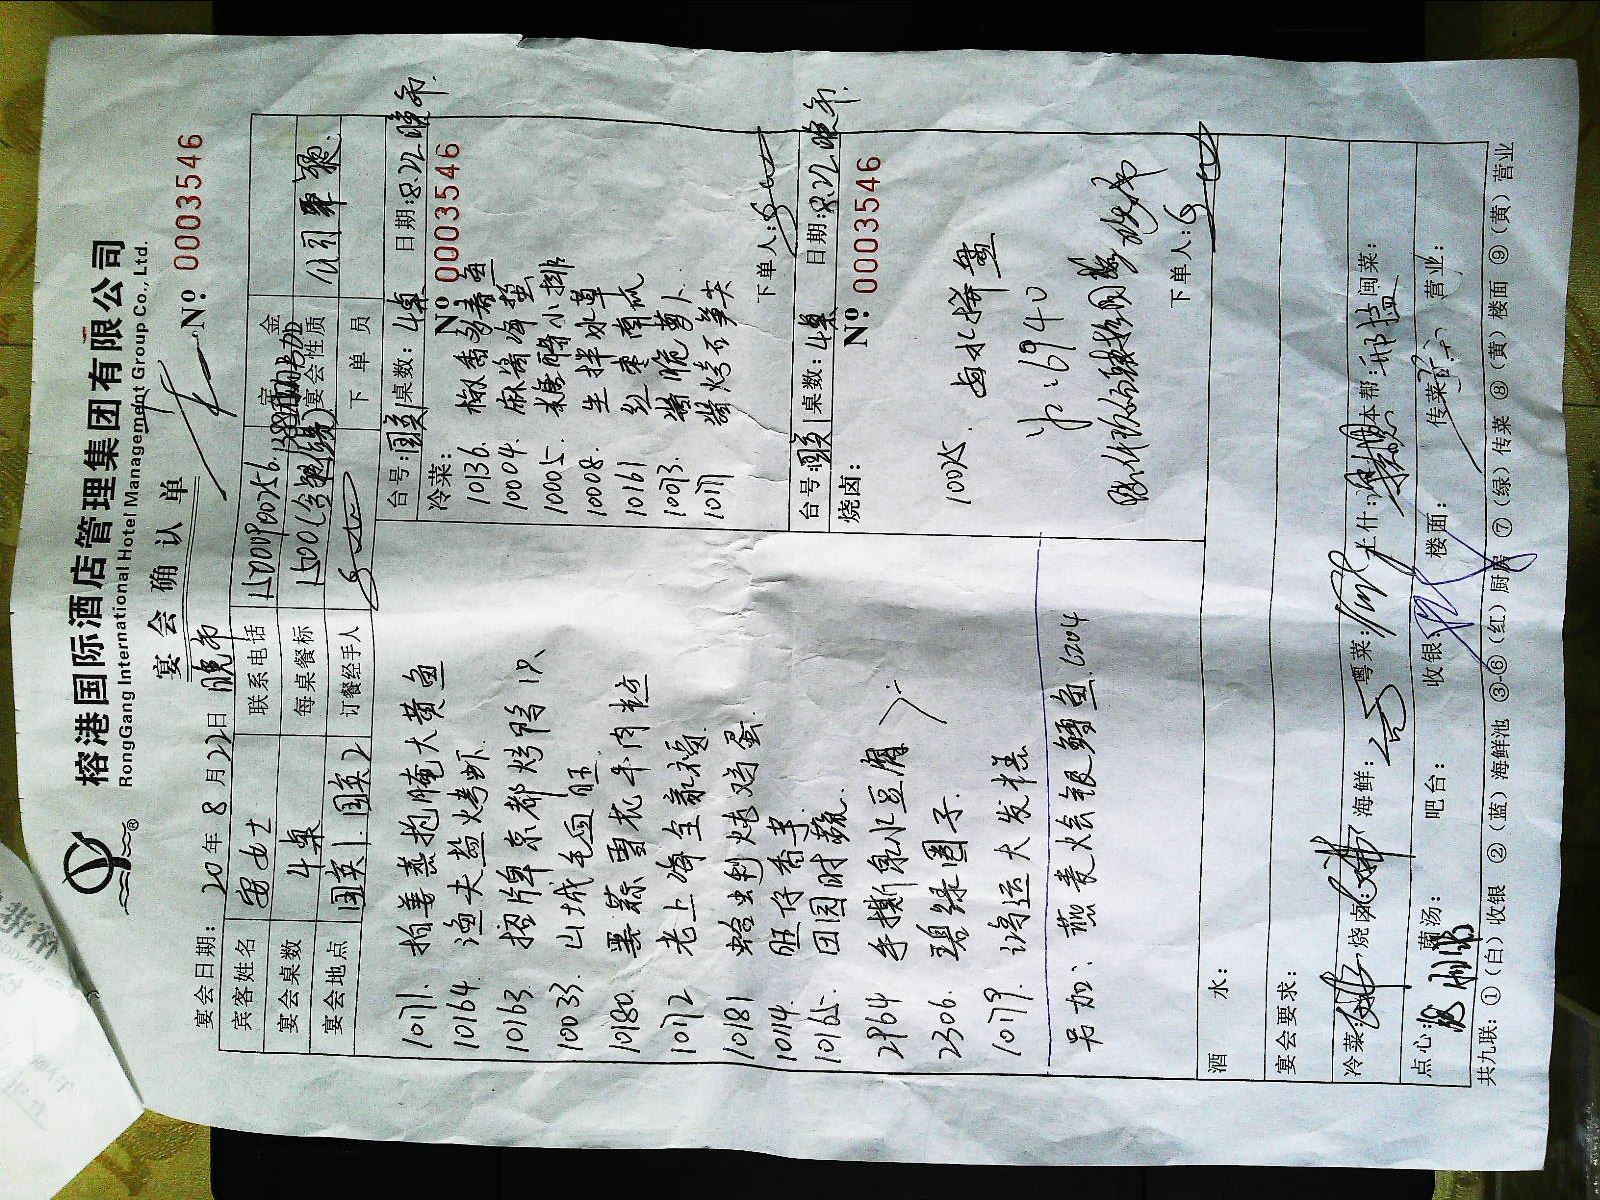 榕港国际酒店管理集团有限公司
RongGang International Hotel Management Group Co., Ltd.
宴会确认单
No: 0003546
宴会日期: 20 年 8 月 22 日 晚市
宾客姓名 联系电话 定金
宴会桌数 4桌 每桌餐标 1500 宴会性质 公司聚
宴会地点 国宾1. 国宾2 订餐经手人 下单员
10171. 拍姜葱抱腌大黄鱼
10164 渔夫盐烤虾
10163. 招牌京都烤鸭 1只
10033. 山城毛血旺
10180. 黑蒜雪花牛肉粒
10172 老上海全家福
10181 蛤蜊炖鸡蛋
10114. 旺仔香芋
10165. 团园时蔬
2864 手撕泉水豆腐
2306. 碧绿圈子
10179. 鸿运大发糕
另加: 燕麦烩银鳕鱼 1204
台号: 国宾1 桌数: 4桌 日期: 8.22 晚市.
冷菜: No 0003546
10136.
10004. 麻酱海蜇
10005. 糖醋小排
10008. 生拌冰草
10161 红枣南瓜
10073. 酱脆萝卜
10171 酱烤冬笋尖
下单人:
台号: 国宾1 桌数: 4桌 日期: 8.22 晚市.
烧卤: No: 0003546
10025 卤水拼盘
6940
下单人:
酒水:
宴会要求:
冷菜: 烧卤: 海鲜: 粤菜: 上什: 本帮: 闽菜:
点心: 菌汤: 吧台: 收银: 楼面: 传菜: 营业:
共九联: ①(白)收银 ②(蓝)海鲜池 ③-⑥(红)厨房 ⑦(绿)传菜 ⑧(黄)楼面 ⑨(黄)营业